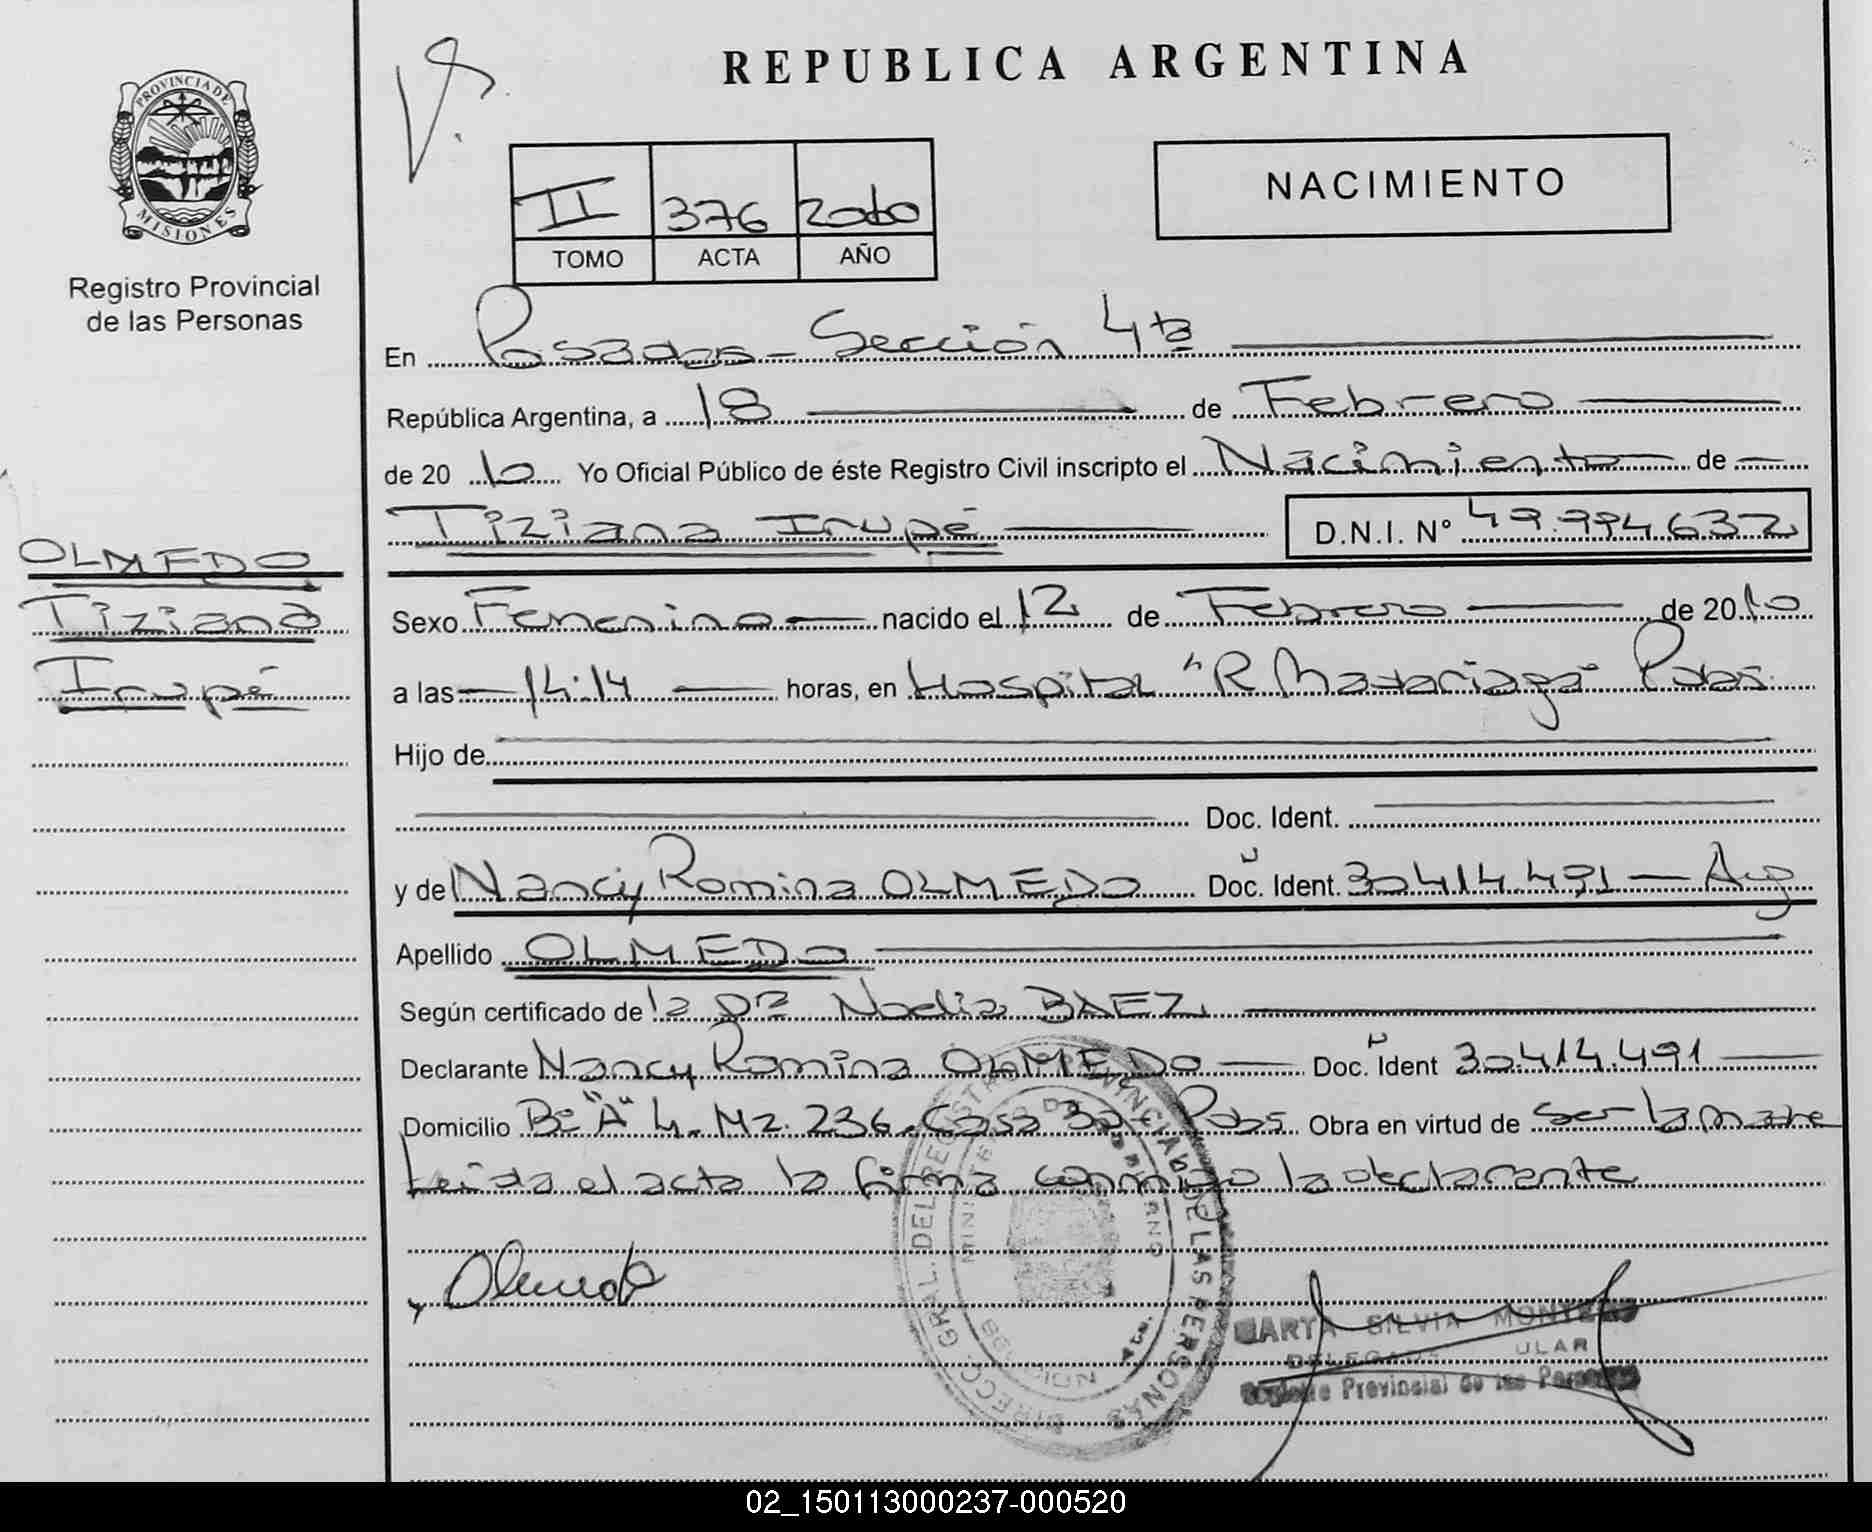 REPUBLICA ARGENTINA
PROVINCIA DE
MISIONES
Registro Provincial
de las Personas
II 376 2010
TOMO ACTA AÑO
NACIMIENTO
En Posadas - Sección 4ta
República Argentina, a 18 de Febrero
de 20 10 Yo Oficial Público de éste Registro Civil inscripto el Nacimiento de
Tiziana Irupé D.N.I. Nº 49.994.632
OLMEDO
Tiziana
Irupé
Sexo Femenino nacido el 12 de Febrero de 20 10
a las 14:14 horas, en Hospital "R Madariaga" Pdas.
Hijo de
Doc. Ident.
y de Nancy Romina OLMEDO Doc. Ident. 30.414.491 - Arg
Apellido OLMEDO
Según certificado de la Dra Nadia BAEZ
Declarante Nancy Romina OLMEDO Doc. Ident 30.414.491
Domicilio Bº "A" 4. Mz. 236. Casa 30 Pdas. Obra en virtud de Ser la madre
Leida el acta la firma conmigo la declarante
Olmedo
DIRECC. GRAL. DEL REGISTRO PROVINCIAL DE LAS PERSONAS
SILVIA
Provincial de las
02_150113000237-000520